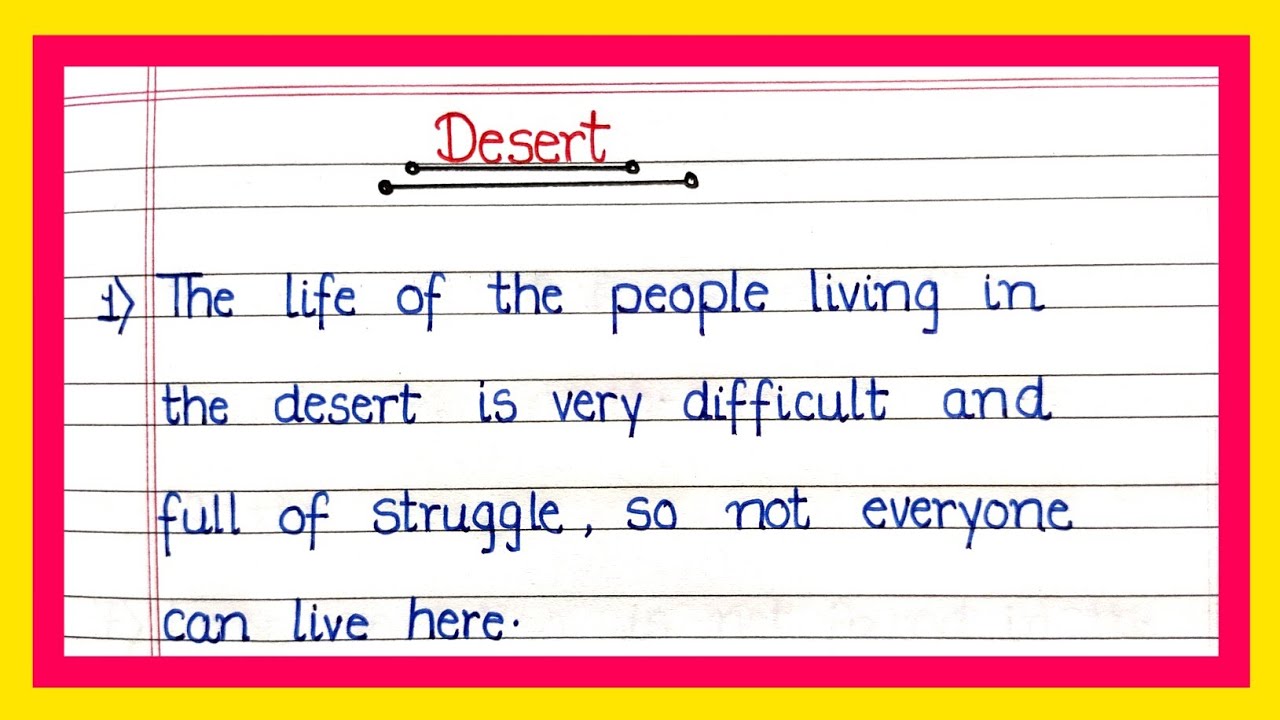 Desert
1) The life of the people living in
the desert is very difficult and
full of struggle, so not everyone
can live here.